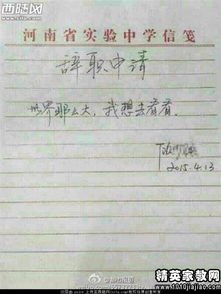 西陆网
www.xilu.com
河南省实验中学信笺
辞职申请
世界那么大，我想去看看。
2015.4.13
精英家教网
www.1010jiajiao.com